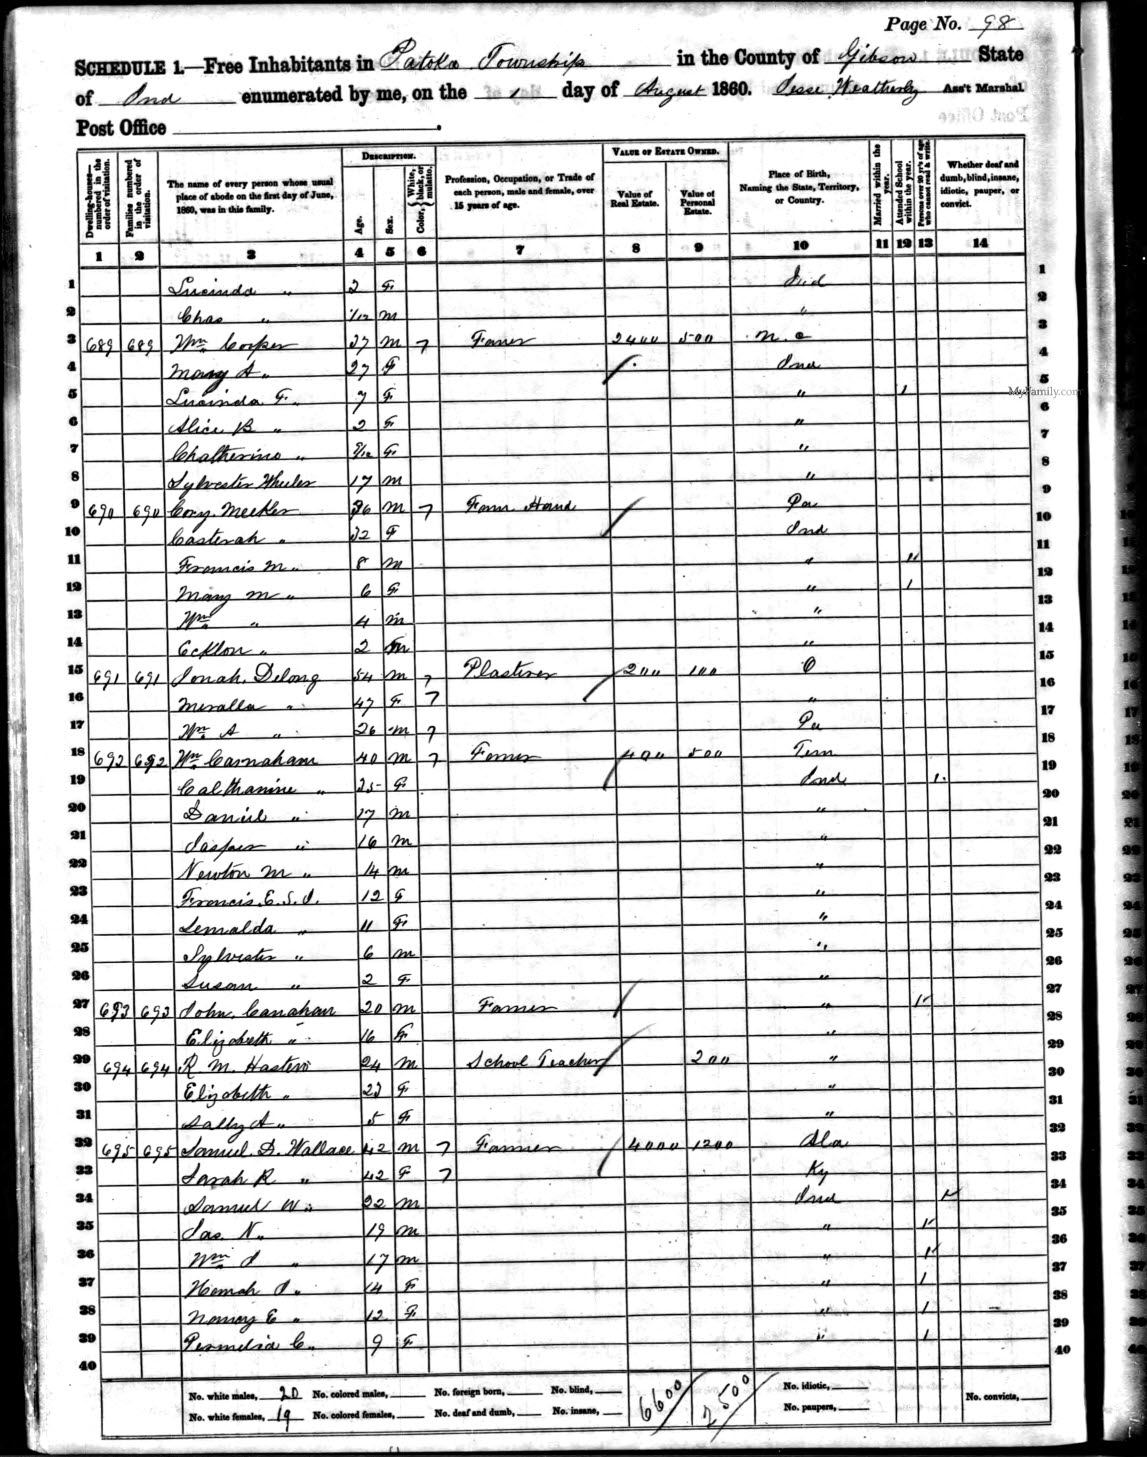 Page No. 98
SCHEDULE 1.—Free Inhabitants in Patoka Township in the County of Gibson State
of Ind enumerated by me, on the 1 day of August 1860. Jesse Weatherly Ass't Marshal
Post Office
Dwelling-houses numbered in the order of visitation. Families numbered in the order of visitation. The name of every person whose usual place of abode on the first day of June, 1860, was in this family. DESCRIPTION. Age. Sex. Color, White, black, or mulatto. Profession, Occupation, or Trade of each person, male and female, over 15 years of age. VALUE OF ESTATE OWNED. Value of Real Estate. Value of Personal Estate. Place of Birth, Naming the State, Territory, or Country. Married within the year. Attended School within the year. Persons over 20 y'rs of age who cannot read & write. Whether deaf and dumb, blind, insane, idiotic, pauper, or convict.
1 2 3 4 5 6 7 8 9 10 11 12 13 14
1 Lucinda " 2 F Ind 1
2 Chas " /12 m " 2
3 689 689 Wm Cooper 37 m 7 Famer 2400 500 N. C 3
4 Mary A " 27 F Ind 4
5 Lucinda F " 7 F " 1 5
MyFamily.com
6 Alice B " 2 F " 6
7 Chatherine " /12 F " 7
8 Sylvester Wheeler 17 m " 8
9 690 690 Cory Meeker 36 m 7 Farm Hand Pa 9
10 Casterah " 32 F Ind 10
11 Francis M " 8 m " 11 11
12 Mary M " 6 F " 1 12
13 Wm " 4 m " 13
14 Ecklon " 2 m " 14
15 691 691 Jonah Delong 54 m 7 Plasterer 200 100 O 15
16 Meralla " 47 F 7 " 16
17 Wm A " 26 m 7 Pa 17
18 692 692 Wm Carnaham 40 m 7 Famer 400 500 Tenn 18
19 Calthanine " 25 F Ind 1 19
20 Daniel " 17 m " 20
21 Jasper " 16 m " 21
22 Newton M " 14 m " 22
23 Francis E. S. J. 12 F " 23
24 Lemalda " 11 F " 24
25 Sylvister " 6 m " 25
26 Susan " 2 F " 26
27 693 693 John Canahan 20 m Famer " 1 27
28 Elizabeth " 16 F " 28
29 694 694 R M. Hasten 24 m School Teacher 200 " 29
30 Elizabeth " 23 F " 30
31 Sally A " 5 F " 31
32 695 695 Samuel D. Wallace 42 m 7 Farmer 4000 1200 Ala 32
33 Sarah R " 42 F 7 Ky 33
34 Samuel W " 22 m Ind 1 34
35 Jas. N " 19 m " 1 35
36 Wm J " 17 m " 1 36
37 Hannah J " 14 F " 1 37
38 Nancy E " 12 F " 1 38
39 Permelia C " 9 F " 1 39
40 40
No. white males, 20 No. colored males, No. foreign born, No. blind, 6600 2500 No. idiotic, No. convicts,
No. white females, 19 No. colored females, No. deaf and dumb, No. insane, No. paupers,